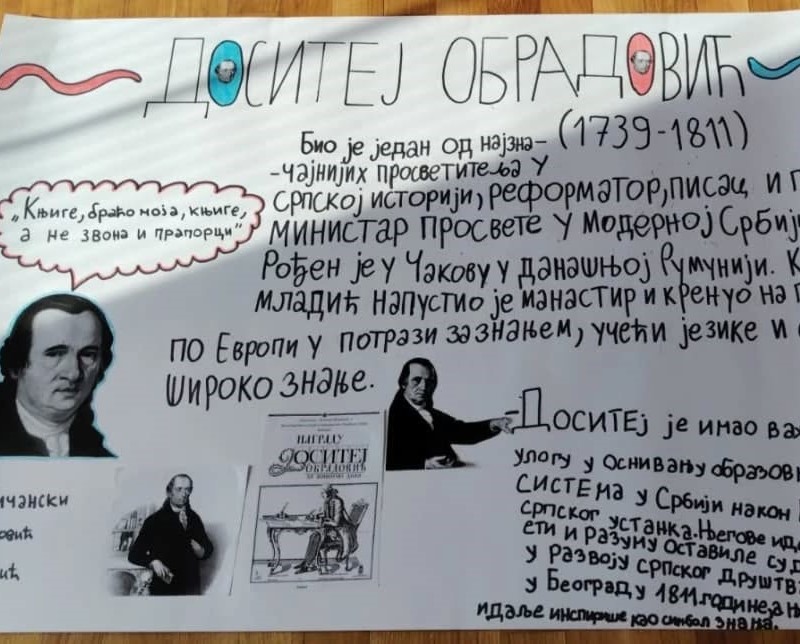 ДОСИТЕЈ ОБРАДОВИЋ
(1739-1811)
Био је један од најзна-
-чајнијих просветитеља у
српској историји, реформатор, писац и
министар просвете у модерној Србиј
Рођен је у Чакову у данашњој Румунији.
младић напустио је манастир и кренуо на
по Европи у потрази за знањем, учећи језике и
широко знање.
„Књиге, браћо моја, књиге,
а не звона и прапорци"
-Доситеј је имао ва
улогу у оснивању образов
система у Србији након
српског устанка. Његове ид
ети и разуму оставиле су
у развоју српског друштв
у Београду 1811. године, а
и даље инспирише као симбол знања.
НАГРАДУ
ДОСИТЕЈ
ОБРАДОВИЋ
ичански
овић
ић